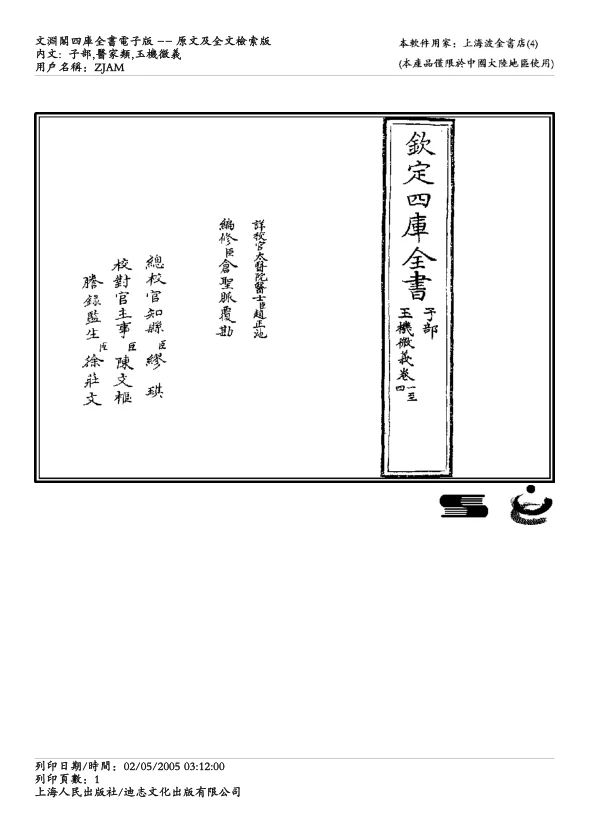 文淵閣四庫全書電子版 —— 原文及全文檢索版
內文: 子部,醫家類,玉機微義
用戶名稱: ZJAM
本軟件用家: 上海波金書店(4)
(本產品僅限於中國大陸地區使用)
欽定四庫全書
子部
玉機微義卷一至四
詳校官太醫院醫士臣趙正池
編修臣倉聖脈覆勘
總校官知縣臣繆琪
校對官主事臣陳文樞
謄錄監生臣徐莊文
列印日期/時間: 02/05/2005 03:12:00
列印頁數: 1
上海人民出版社/迪志文化出版有限公司